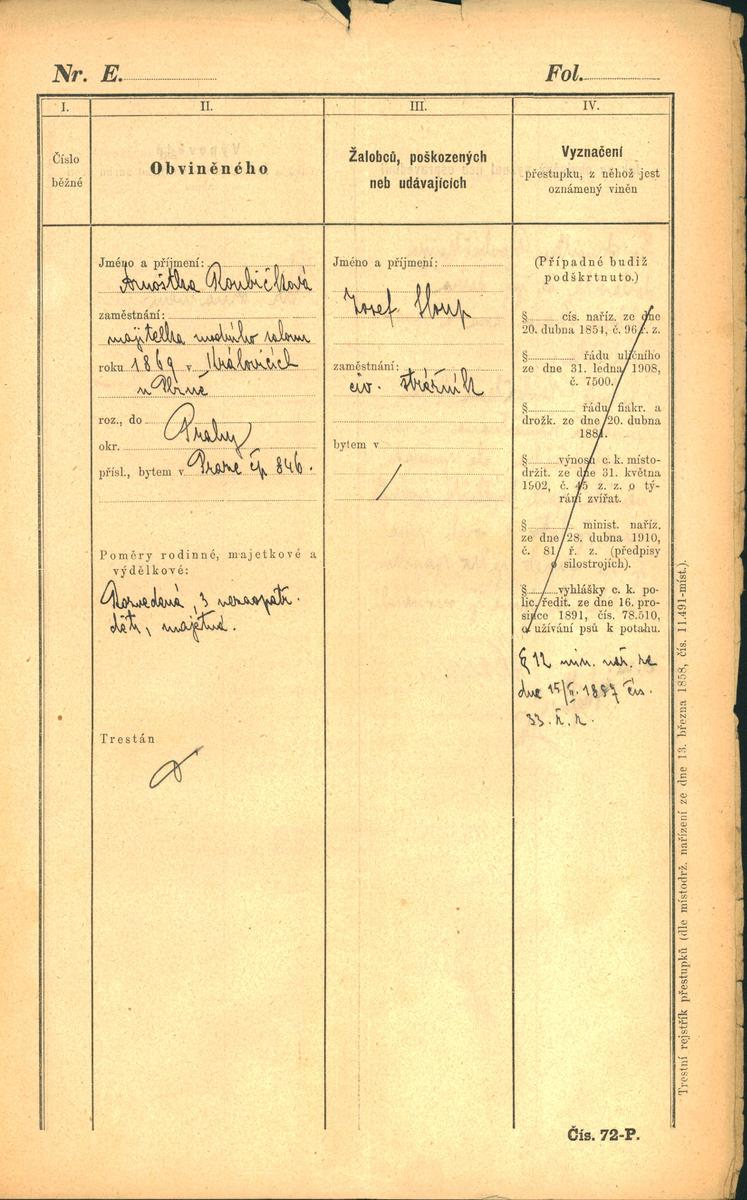 Nr. E.
Fol.
I.
II.
III.
IV.
Číslo
běžné
Obviněného
Žalobců, poškozených
neb udávajících
Vyznačení
přestupku, z něhož jest
oznámený viněn
Jméno a příjmení:
Arnoštka Roubíčková
zaměstnání:
majitelka modního salonu
roku 1869 v Královicích
u Plzně
roz., do
Prahy
okr.
přísl., bytem v Praze čp 846.
Poměry rodinné, majetkové a
výdělkové:
Rozvedená, 3 nezaopatř.
děti, majetná.
Trestán
Jméno a příjmení:
Josef Sloup
zaměstnání:
civ. strážník
bytem v
(Případné budiž
podškrtnuto.)
§ cís. naříz. ze dne
20. dubna 1854, č. 96 ř. z.
§ řádu uličního
ze dne 31. ledna 1908,
č. 7500.
§ řádu fiakr. a
drožk. ze dne 20. dubna
1884.
§ výnosu c. k. místo-
držit. ze dne 31. května
1902, č. 45 z. z. o tý-
rání zvířat.
§ minist. naříz.
ze dne 28. dubna 1910,
č. 81 ř. z. (předpisy
o silostrojích).
§ vyhlášky c. k. po-
lic. ředit. ze dne 16. pro-
since 1891, čís. 78.510,
o užívání psů k potahu.
§ 12 min. nař. ze
dne 15/II. 1887 čís.
33. ř. z.
Trestní rejstřík přestupků (dle místodrž. nařízení ze dne 13. března 1858, čís. 11.491-míst.).
Čís. 72-P.